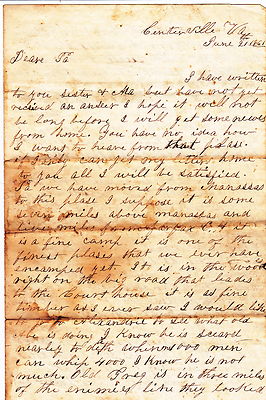 Centervill Va
June 21st 1861
Dear Pa
I have written
to you sister & Ma but have not yet
recived an anser I hope it will not
be long before I will get some newes
from home. You have no idea how
I want to heare from that plase.
if I only can git my letters home
to you all I will be satisfied.
Pa we have moved from Manassas
to this plase I suppose it is some
seven miles above manasas and
miles from Fairfax C. H it
is a fine camp it is one of the
finest plases that we ever have
encamped yet. It is in the woods
right on the big road that leades
to the Court house it is as fine
timber as I ever saw I would like
to go to Alexandria to see what old
Abe is doing I know he is scared
nearley to deth when 1000 men
can whip 4000 I know he is not
much. Old Greg is in three miles
of the enimies line they looked